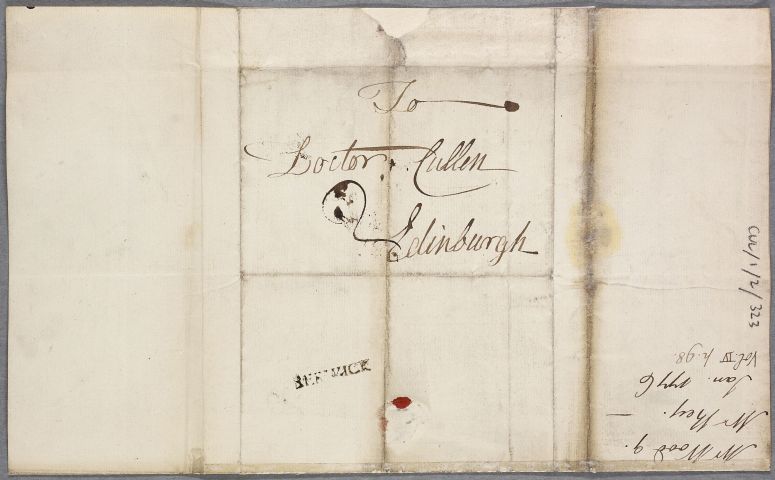 To
Doctor Cullen
2
Edinburgh
BERWICK
CUL/1/2/323
Mr Wood q.
Mr
Jan. 1776
Vol. IV p. 98.